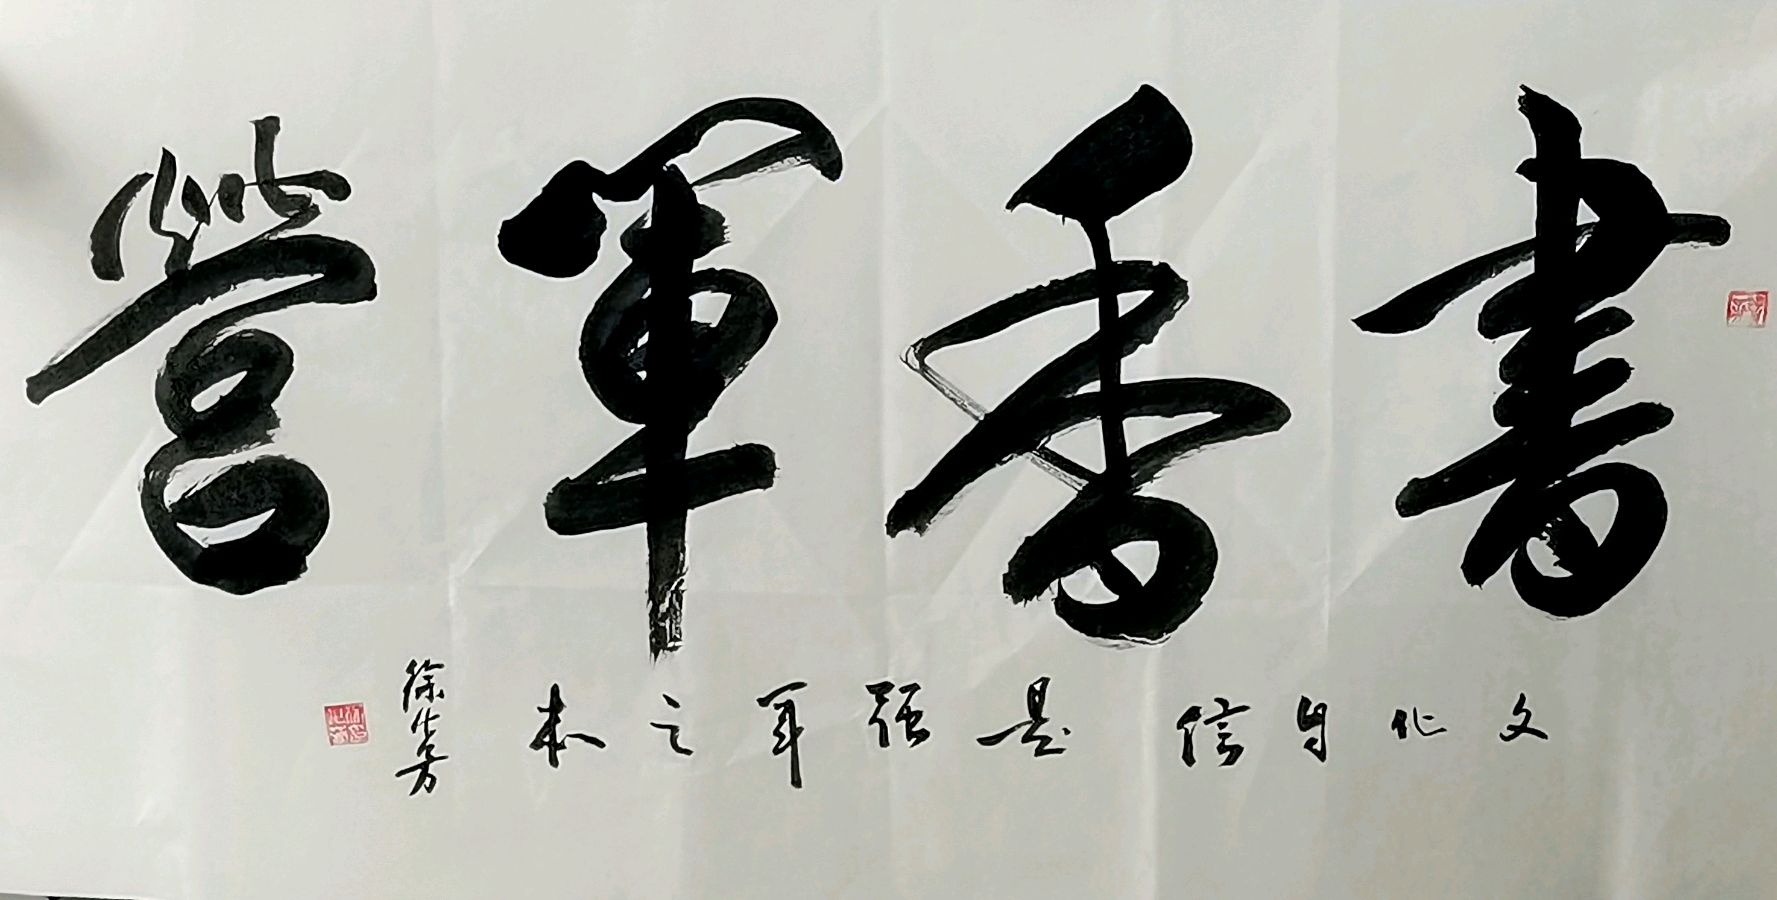 書香軍營
文化自信是强军之本
徐化芳